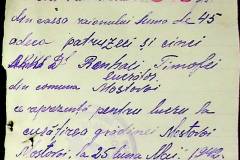 din cassa raionului suma de 45
adeca patruzeci și cinci
D Timofei
din comuna Mostovoi
ce reprezintă pentru lucru la
curățirea grădinei Mostovoi
Mostovoi, la 25 luna Maiu 1942